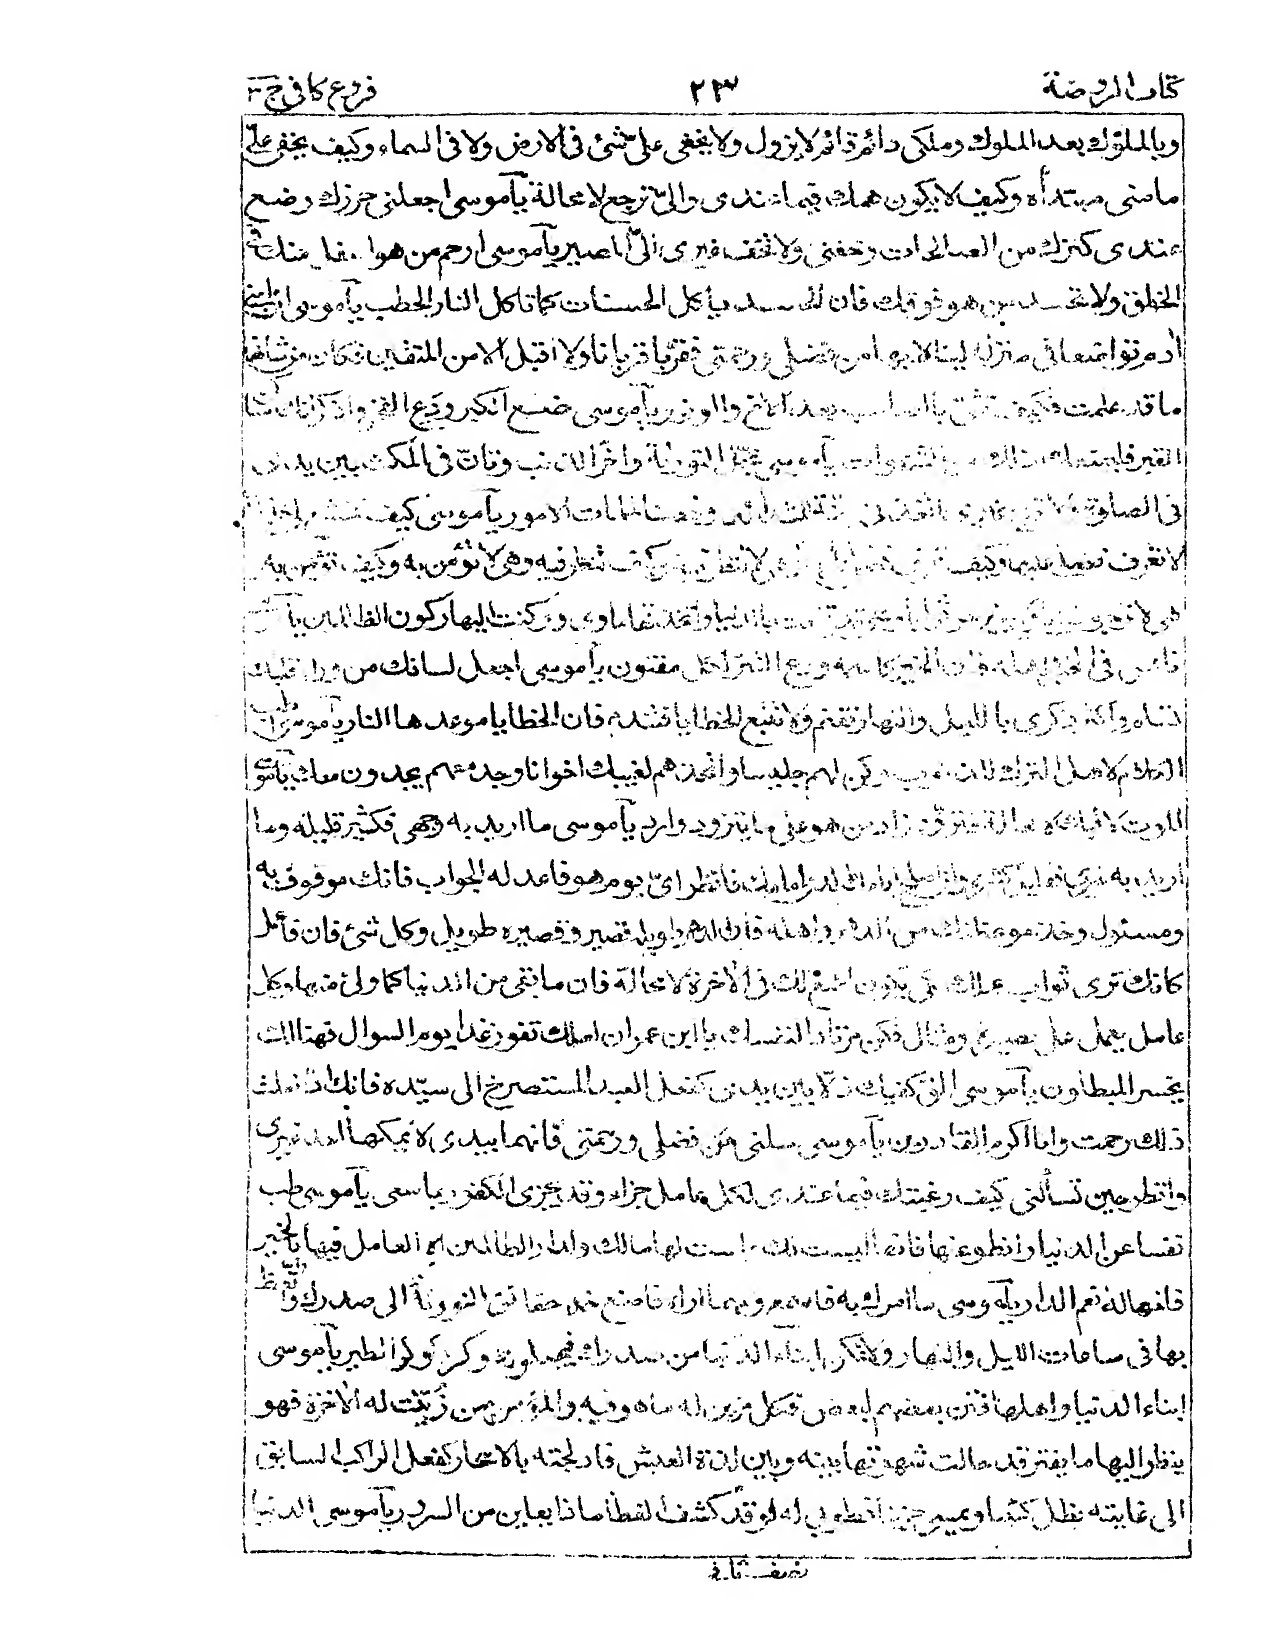 كتاب الروضة ٢٣ فروع كافي ج ٣
وبالملوك بعد الملوك وملكي دائم قائم لا يزول ولا يخفى عليّ شئ في الارض ولا في السماء وكيف يخفى عليّ
ما مني مبتدأه وكيف لا يكون همك فيما عندي واليّ ترجع لا محالة يا موسى اجعلني حرزك وضع
عندي كنزك من الصالحات وخفني ولا تخف غيري اليّ المصير يا موسى ارحم من هو اسفل منك في
الخلق ولا تحسد من هو فوقك فان الحسد يأكل الحسنات كما تأكل النار الحطب يا موسى ان ابني
آدم تواضعا في منزلة لينالا بها من فضلي ورحمتي فقرّبا قربانا ولا اقبل الا من المتقين فكان من شأنهما
ما قد علمت فكيف تثق بالصاحب بعد الاخ والوزير يا موسى ضع الكبر ودع الفخر واذكر انك ساكن
القبر فليمنعك ذلك من الشهوات يا موسى عجّل التوبة واخّر الذنب وتأنّ في المكث بين يدي
في الصلوة ولا ترج غيري اتخذني جنّة للشدائد وحصنا لملمات الامور يا موسى كيف تخشع لي خليقة
لا تعرف فضلي عليها وكيف تعرف فضلي عليها وهي لا تنظر فيه وكيف تنظر فيه وهي لا تؤمن به وكيف تؤمن به
وهي لا ترجو ثوابا وكيف ترجو ثوابا وهي قد قنعت بالدنيا واتخذتها مأوى وركنت اليها ركون الظالمين يا موسى
نافس في الخير اهله فان الخير كاسمه ودع الشر لكل مفتون يا موسى اجعل لسانك من وراء قلبك
تسلم واكثر ذكري بالليل والنهار تغنم ولا تتبع الخطايا فتندم فان الخطايا موعدها النار يا موسى اطب
الكلام لاهل الترك للذنوب وكن لهم جليسا واتخذهم لغيبك اخوانا وجد معهم يجدون معك يا موسى
الموت لاقيك لا محالة فتزوّد زاد من هو على ما يتزود وارد يا موسى ما اريد به وجهي فكثير قليله وما
اريد به غيري فقليل كثيره وان اصلح ايامك الذي امامك فانظر ايّ يوم هو فاعد له الجواب فانك موقوف به
ومسئول وخذ موعظتك من الدهر واهله فان الدهر طويله قصير وقصيره طويل وكل شئ فان فاعمل
كانك ترى ثواب عملك لكي يكون اطمع لك في الآخرة لا محالة فان ما بقي من الدنيا كما ولى منها وكل
عامل يعمل على بصيرة ومثال فكن مرتادا لنفسك يا ابن عمران لعلك تفوز غدا يوم السوال فهنالك
يخسر المبطلون يا موسى الق كفيك ذلا بين يدي كفعل العبد المستصرخ الى سيّده فانك اذا فعلت
ذلك رحمت وانا اكرم القادرين يا موسى سلني من فضلي ورحمتي فانهما بيدي لا يملكهما احد غيري
وانظر حين تسألني كيف رغبتك فيما عندي لكل عامل جزاء وقد يجزى الكفور بما سعى يا موسى طب
نفسا عن الدنيا وانطو عنها فانها ليست لك ولست لها مالك ولدار الظالمين الا العامل فيها بالخير
فانها له نعم الدار يا موسى ما آمرك به فاسمع ومهما اراه فاصنع خذ حقائق التورية الى صدرك وتيقظ
بها في ساعات الليل والنهار ولا تمكن ابناء الدنيا من صدرك فيجعلونه وكرا كوكر الطير يا موسى
ابناء الدنيا واهلها فتن بعضهم لبعض فكل مزين له ما هو فيه والمؤمن من زُيّنت له الآخرة فهو
ينظر اليها ما يفتر قد حالت شهوتها بينه وبين لذة العيش فادلجته بالاسحار كفعل الراكب السابق
الى غايته يظل كئيبا ويمسي حزينا فطوبى له لو قد كشف الغطا ماذا يعاين من السرور يا موسى الدنيا
نصف ثاني